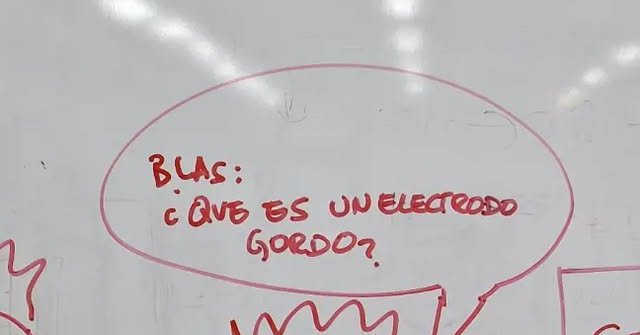 BLAS:
¿QUE ES UN ELECTRODO
GORDO?